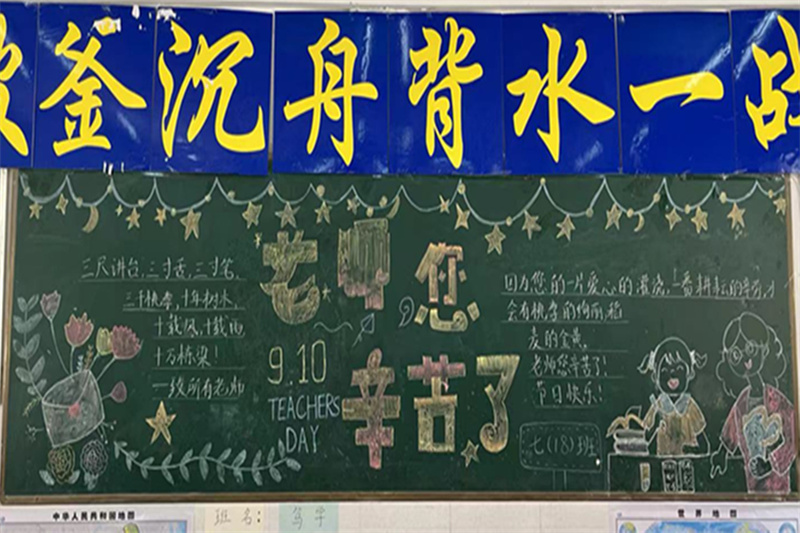 釜沉舟背水一战
三尺讲台,三寸舌,三寸笔,
三千桃李,十年树木,
十载风,十载雨
十万栋梁!
一致所有老师
老师您
辛苦了
9.10
TEACHERS
DAY
因为您的一片爱心的灌浇,一番耕耘的辛劳,才
会有桃李的绚丽,稻
麦的金黄。
老师您辛苦了!
节日快乐!
七(18)班
中华人民共和国地图
班名:
世界地图